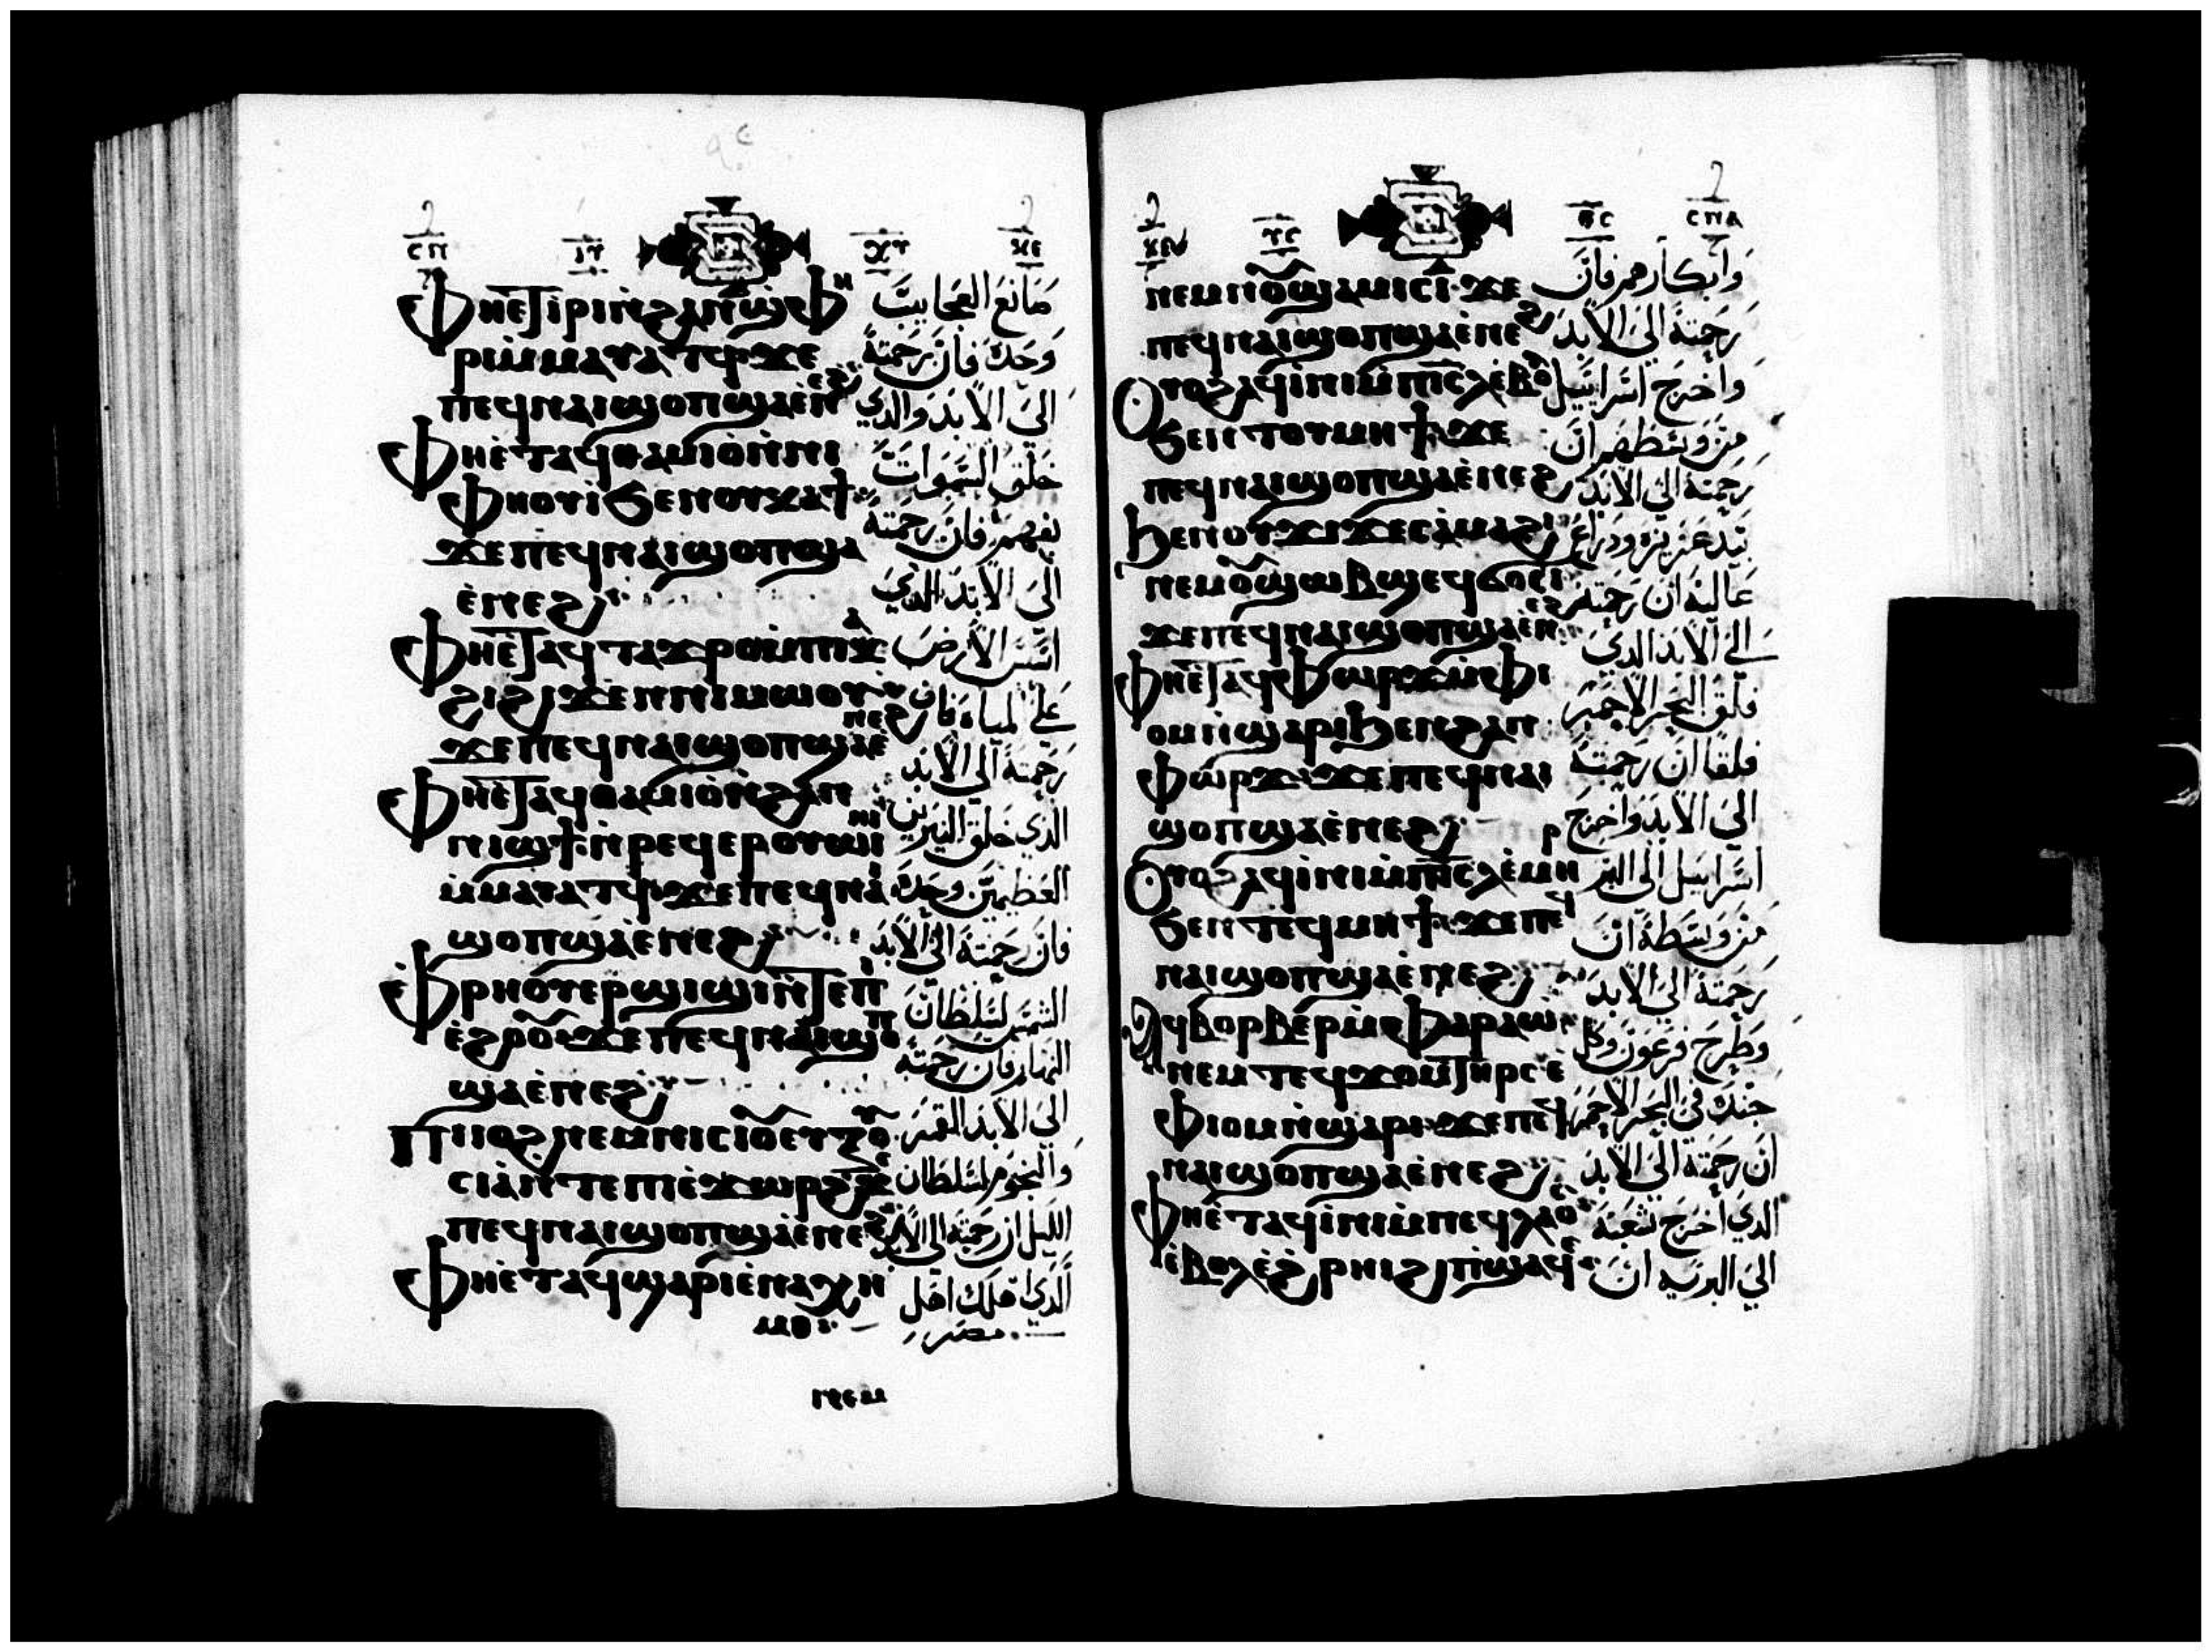 ⲥⲡ ⲓⲩ ⲭⲩ ⲕⲉ
ⲫⲏⲉⲧⲓⲣⲓⲛ̀ϩⲁⲛϣⲫⲏ
ⲣⲓⲙ̀ⲙⲁⲩⲁⲧϥϫⲉ
ⲡⲉϥⲛⲁⲓϣⲟⲡϣⲁⲉ̀ⲛⲉϩ
ⲫⲏⲉ̀ⲧⲁϥⲑⲁⲙⲓⲟ̀ⲛ̀ⲛⲓ
ⲫⲏⲟⲩⲓ̀ϧⲉⲛⲟⲩⲕⲁϯ
ϫⲉⲡⲉϥⲛⲁⲓϣⲟⲡϣⲁ
ⲉ̀ⲛⲉϩ
ⲫⲏⲉ̀ⲧⲁϥⲧⲁϫⲣⲟⲙ̀ⲡⲓⲕⲁ
ϩⲓϩⲓϫⲉⲛⲛⲓⲙⲱⲟⲩ
ϫⲉⲡⲉϥⲛⲁⲓϣⲟⲡϣⲁⲉ̀ⲛⲉϩ
ⲫⲏⲉ̀ⲧⲁϥⲑⲁⲙⲓⲟ̀ⲛ̀ϩⲁⲛ
ⲛⲓϣϯⲛ̀ⲣⲉϥⲉⲣⲟⲩⲱⲓⲛⲓ
ⲙ̀ⲙⲁⲩⲁⲧϥϫⲉⲡⲉϥⲛⲁⲓ
ϣⲟⲡϣⲁⲉ̀ⲛⲉϩ
ⲉ̀ⲫⲣⲏⲟⲩⲉⲣϣⲓϣⲓⲛ̀ⲧⲉⲡⲓ
ⲉ̀ϩⲣⲟⲟⲩϫⲉⲡⲉϥⲛⲁⲓϣⲟⲡ
ϣⲁⲉ̀ⲛⲉϩ
ⲡⲓⲓⲟϩⲛⲉⲙⲛⲓⲥⲓⲟⲩⲉⲩⲉⲝⲟⲩ
ⲥⲓⲁ̀ⲛⲧⲉⲡⲓⲉ̀ϫⲱⲣϩϫⲉ
ⲡⲉϥⲛⲁⲓϣⲟⲡϣⲁⲉ̀ⲛⲉϩ
ⲫⲏⲉ̀ⲧⲁϥϣⲁⲣⲓⲉ̀ⲛⲁⲭⲏ
ⲙⲓ
ⲛⲉⲙ
صانع العجايب
وحده فان رحمته
الى الابد والدي
خلق السموات
بفهم فان رحمته
الى الابد الدي
اسس الارض
على المياه فان
رحمته الى الابد
الذي خلق النيرين
العظيمين وحده
فان رحمته الى الابد
الشمس لسلطان
النهار فان رحمته
الى الابد القمر
والنجوم لسلطان
الليل ان رحمته الى الابد
الدي اهلك اهل
مصر
ⲕⲉ ⲩⲥ ⲑⲥ ⲥⲡⲁ
ⲛⲉⲙⲛⲟⲩϣⲁⲙⲓⲥⲓϫⲉ
ⲡⲉϥⲛⲁⲓϣⲟⲡϣⲁⲉ̀ⲛⲉϩ
ⲟⲩⲟϩⲁϥⲓ̀ⲛⲓⲙ̀ⲡⲓⲥⲗⲉ̀ⲃⲟⲗ
ϧⲉⲛⲧⲟⲩⲙⲏϯϫⲉ
ⲡⲉϥⲛⲁⲓϣⲟⲡϣⲁⲉ̀ⲛⲉϩ
ϧⲉⲛⲟⲩϫⲓϫⲉⲥⲁ̀ⲙⲁϩⲓ
ⲛⲉⲙⲟⲩϣⲱⲃϣⲉϥϭⲟⲥⲓ
ϫⲉⲡⲉϥⲛⲁⲓϣⲟⲡϣⲁⲉ̀ⲛⲉϩ
ⲫⲏⲉ̀ⲧⲁϥⲫⲱⲣϫⲙ̀ⲫⲓ
ⲟⲙⲛ̀ϣⲁⲣⲓϧⲉⲛϩⲁⲛ
ⲫⲱⲣϫϫⲉⲡⲉϥⲛⲁⲓ
ϣⲟⲡϣⲁⲉ̀ⲛⲉϩ
ⲟⲩⲟϩⲁϥⲓ̀ⲛⲓⲙ̀ⲡⲓⲥⲗⲉ̀ⲙⲏⲣ
ϧⲉⲛⲧⲉϥⲙⲏϯϫⲉⲡⲉϥ
ⲛⲁⲓϣⲟⲡϣⲁⲉ̀ⲛⲉϩ
ⲁϥⲃⲟⲣⲃⲉⲣⲙ̀ⲫⲁⲣⲁⲱ
ⲛⲉⲙⲧⲉϥϫⲟⲙⲧⲏⲣⲥⲉ̀
ⲫⲓⲟⲙⲛ̀ϣⲁⲣⲓϫⲉⲡⲉϥ
ⲛⲁⲓϣⲟⲡϣⲁⲉ̀ⲛⲉϩ
ⲫⲏⲉ̀ⲧⲁϥⲓ̀ⲛⲓⲙ̀ⲡⲉϥⲗⲁⲟⲥ
ⲉ̀ⲃⲟⲗⲉ̀ϩⲣⲏⲓϩⲓⲡϣⲁϥⲉ
وابكارهم فان
رحمته الى الابد
واخرج اسراييل
من وسطهم ان
رحمته الى الابد
بيد عزيزه ودراع
عاليه ان رحمته
الى الابد الدي
فلق البحر الاحمر
فلقا ان رحمته
الى الابد واخرج
اسراييل الى البر
من وسطه ان
رحمته الى الابد
وطرح فرعون وكل
جنده في البحر الاحمر
ان رحمته الى الابد
الدي اخرج شعبه
الى البريه ان